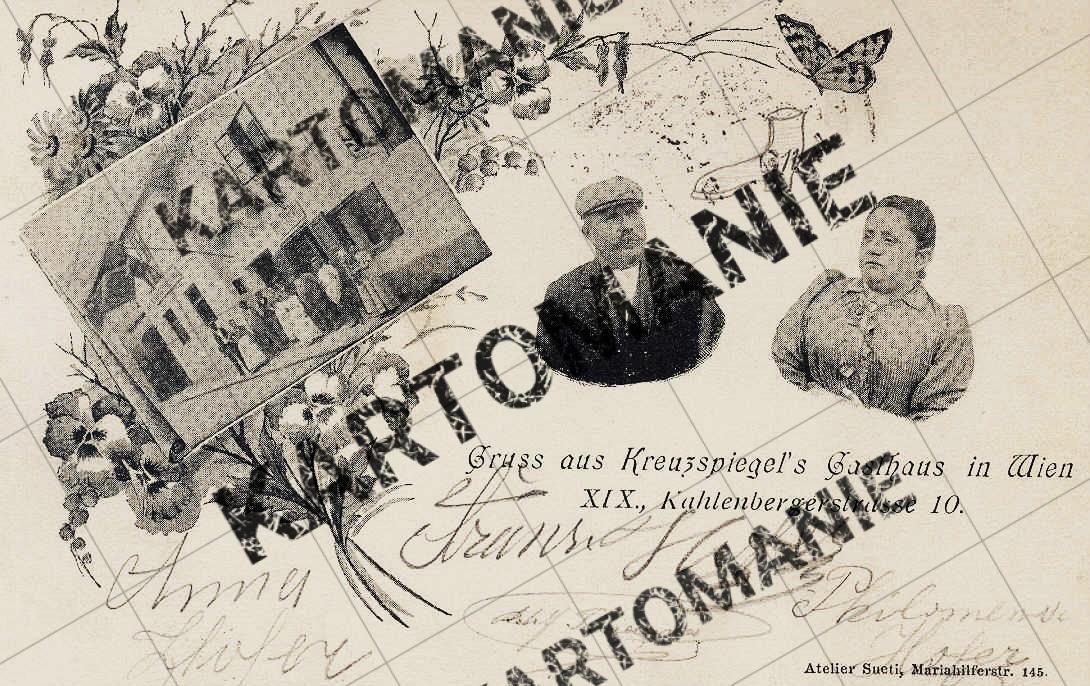 KARTOMANIE
KARTOMANIE
KARTOMANIE
Gruss aus Kreuzspiegel's Gasthaus in Wien
XIX., Kahlenbergerstrasse 10.
Franz
Anna
Hofer
Philomena
Hofer
Atelier Sueti, Mariahilferstr. 145.